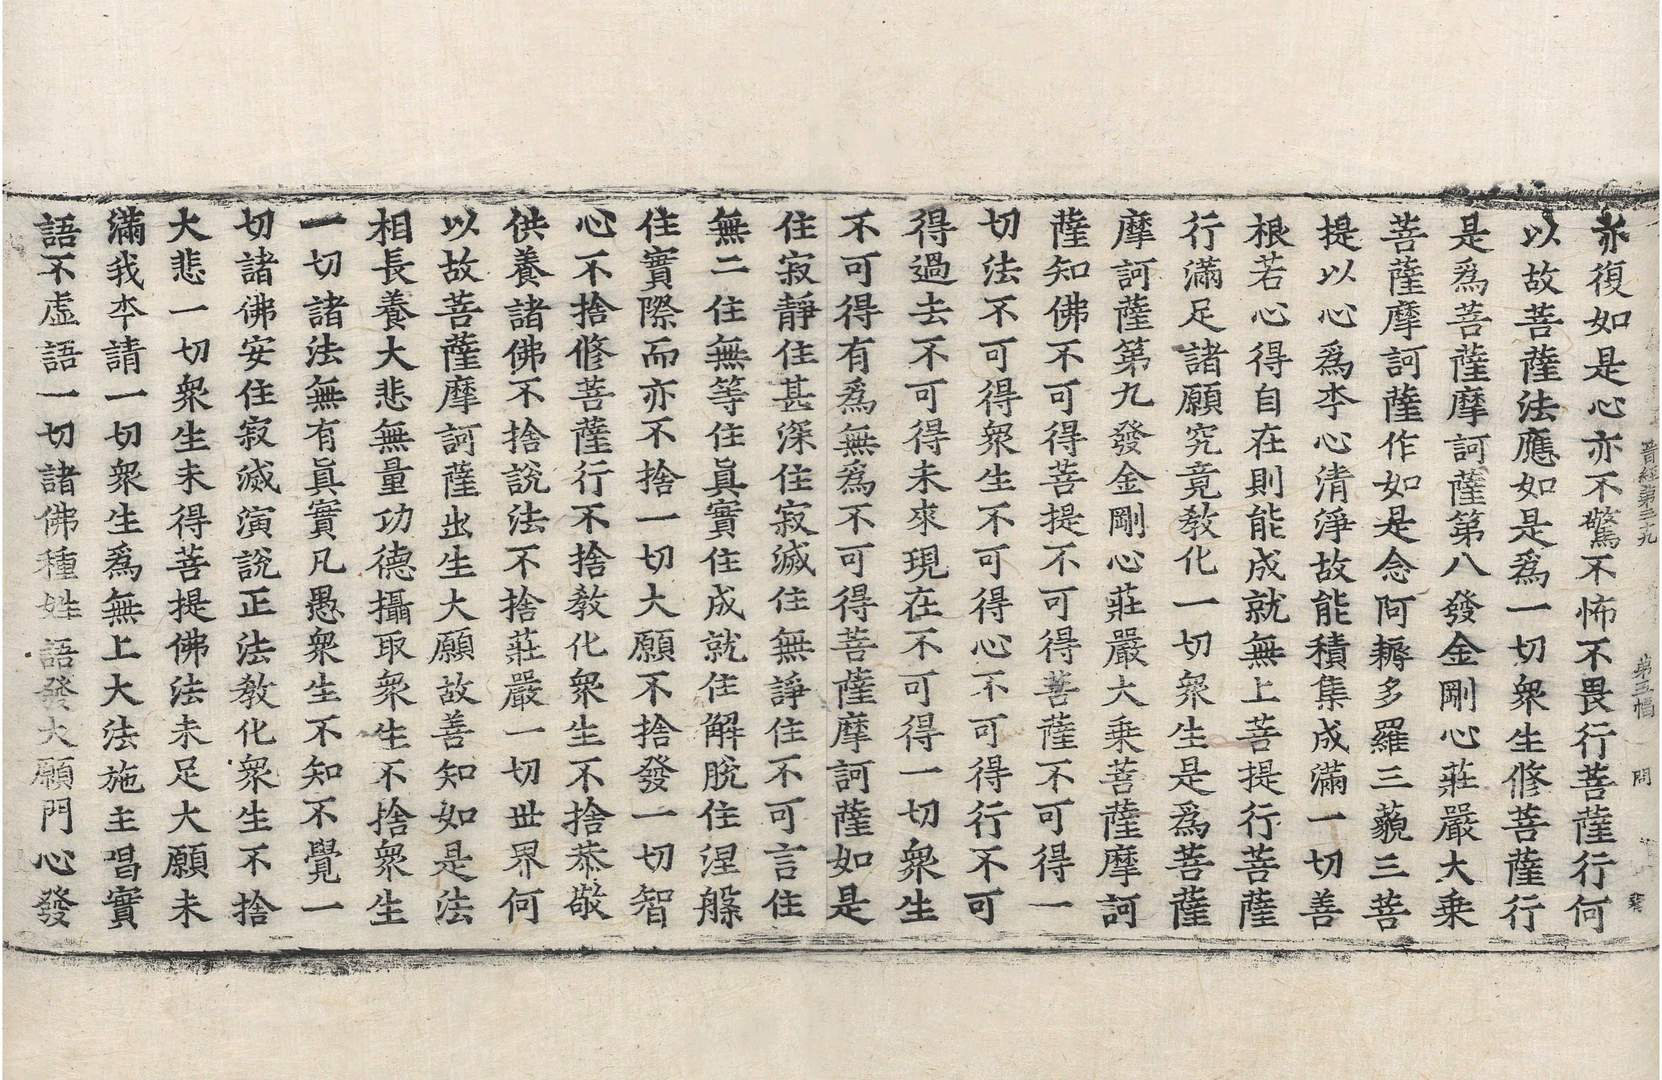 晋經第三九 第五幅 問
亦復如是心亦不驚不怖不畏行菩薩行何
以故菩薩法應如是爲一切衆生修菩薩行
是爲菩薩摩訶薩第八發金剛心莊嚴大乗
菩薩摩訶薩作如是念阿耨多羅三藐三菩
提以心爲夲心清淨故能積集成滿一切善
根若心得自在則能成就無上菩提行菩薩
行滿足諸願究竟教化一切衆生是爲菩薩
摩訶薩第九發金剛心莊嚴大乗菩薩摩訶
薩知佛不可得菩提不可得菩薩不可得一
切法不可得衆生不可得心不可得行不可
得過去不可得未來現在不可得一切衆生
不可得有爲無爲不可得菩薩摩訶薩如是
住寂靜住甚深住寂滅住無諍住不可言住
無二住無等住眞實住成就住解脫住涅槃
住實際而亦不捨一切大願不捨發一切智
心不捨修菩薩行不捨教化衆生不捨恭敬
供養諸佛不捨説法不捨莊嚴一切世界何
以故菩薩摩訶薩出生大願故善知如是法
相長養大悲無量功德攝取衆生不捨衆生
一切諸法無有眞實凡愚衆生不知不覺一
切諸佛安住寂滅演説正法教化衆生不捨
大悲一切衆生未得菩提佛法未足大願未
滿我夲請一切衆生爲無上大法施主唱實
語不虛語一切諸佛種姓語發大願門心發